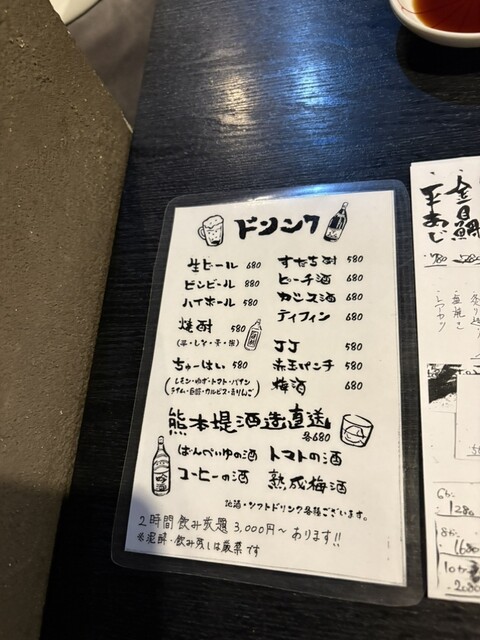 ドリンク
生ビール 680
ビンビール 880
ハイボール 580
焼酎 580
(芋・しそ・麦・米)
ちゅーはい 580
(レモン・ゆず・トマト・パイン
ライム・巨峰・カルピス・青りんご)
すだち酎 580
ピーチ酒 680
カシス酒 680
ティフィン 680
JJ 580
赤玉パンチ 580
梅酒 680
熊本堤酒造直送
各680
ばんぺいゆの酒 トマトの酒
コーヒーの酒 熟成梅酒
地酒・ソフトドリンク各種ございます。
2時間飲み放題 3,000円~あります!!
※泥酔・飲み残しは厳禁です
金目鯛
平あじ
780 580
塩焼き
6カン
1280
8カン
1680
10カン
2080